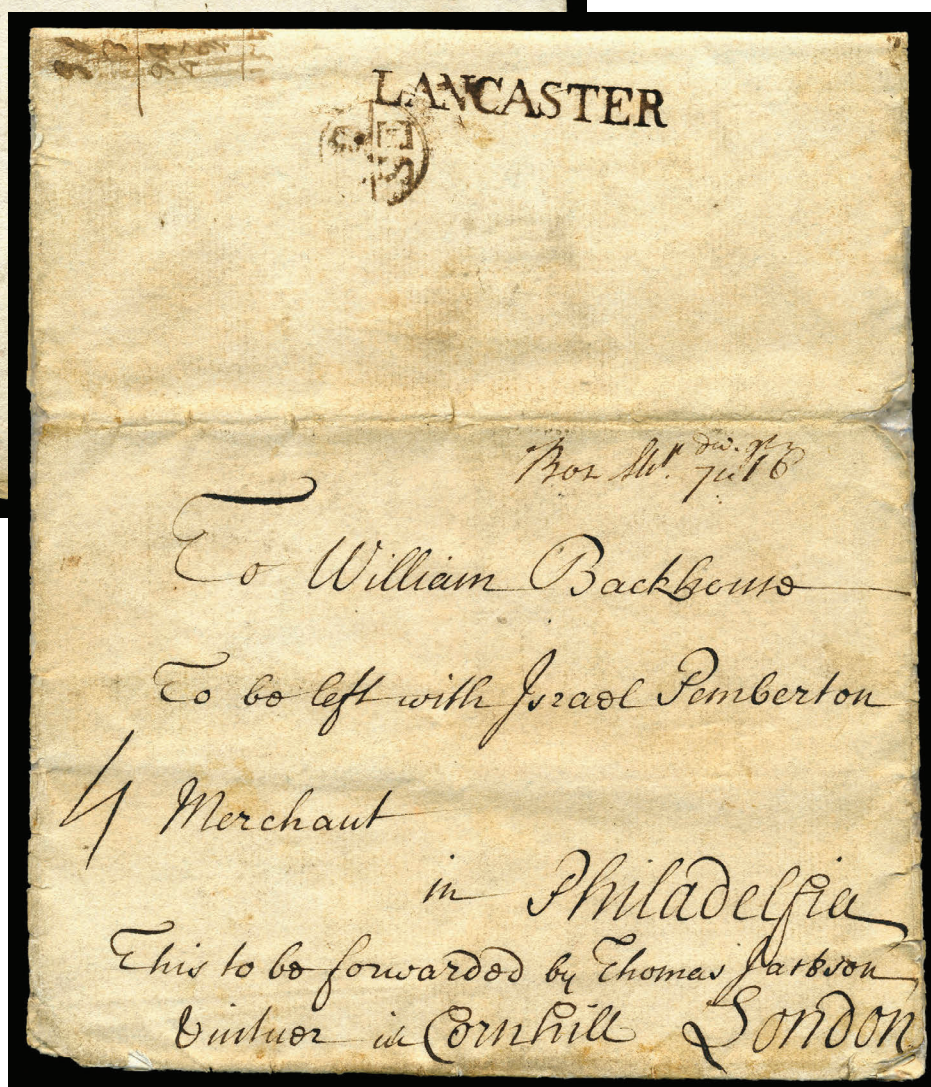 LANCASTER
To William Backhouse
To be left with Israel Pemberton
4 Merchant
in Philadelfia
This to be forwarded by Thomas Jackson
Vintner in Cornhill London